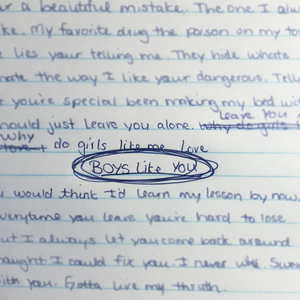 ur a beautiful mistake. The one I alw
ke. My favorite drug the person on my to
e lies your telling me. They hide whats
mate the way I like your dangerous. Tell
e you're special been making my bed wit
leave you
hould just leave you alone. Why do girls
Why
love I do girls like me love
BOYS Like YOU
u would think I'd learn my lesson by now.
verytime you leave you're hard to lose
ut I always let you come back around
hought I could fix you. I never will. Swea
ith you. Gotta live my thruth.